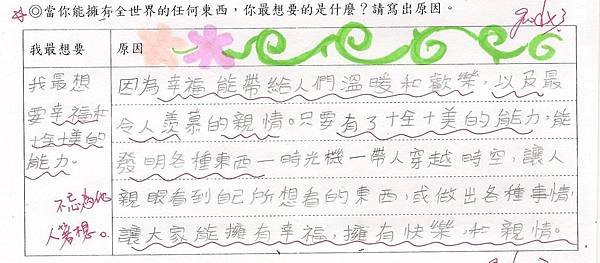 ◎當你能擁有全世界的任何東西，你最想要的是什麼？請寫出原因。
good×3
我最想要
原因
我最想
要幸福和
十全十美的
能力。
因為幸福能帶給人們溫暖和歡樂，以及最
令人羨慕的親情。只要有了十全十美的能力，能
發明各種東西—時光機—帶人穿越時空，讓人
親眼看到自己所想看的東西，或做出各種事情，
讓大家能擁有幸福，擁有快樂，和親情。
不忘為他
人著想。